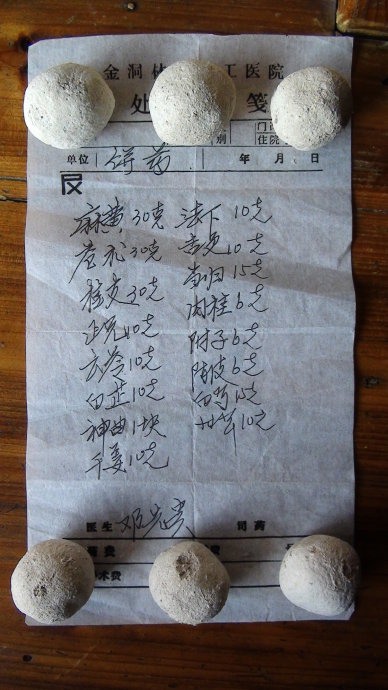 金洞林 工医院
处 笺
别
住院
单位 饼药 年 月 日
麻黄 30克 法下 10克
苍术 30克 吉更 10克
枝文 30克 当归 15克
止壳 10克 肉桂 6克
云苓 10克 附子 6克
白芷 10克 陈皮 6克
神曲 1块 白芍 15克
干姜 10克 川芎 10克
医生 司药
药费
术费